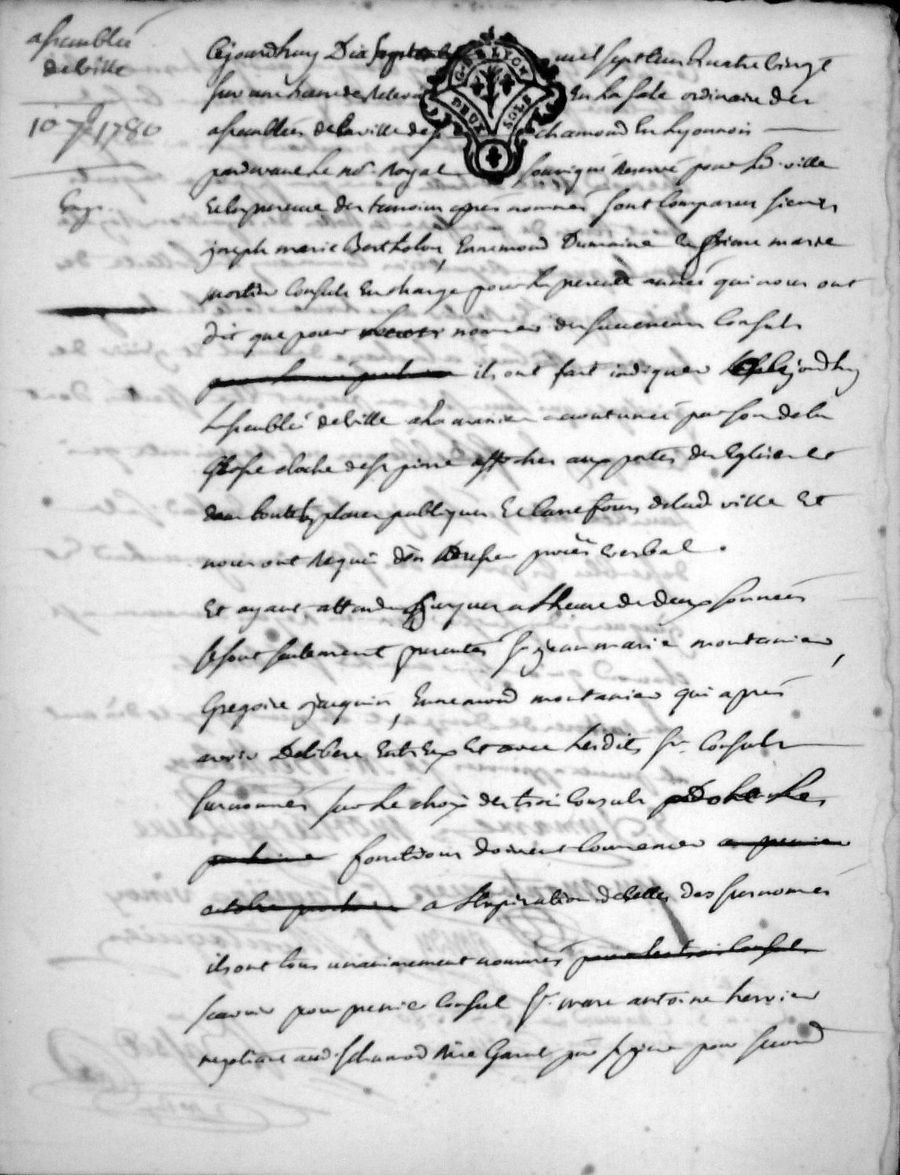 assemblée
de ville
10 7bre 1780
Cejourdhuy Dix septembre mil sept cent quatre vingt
GEN LYON
DEUX SOLS
sur une heure de relevée En la sale ordinaire des
assemblées de la ville de St chamond En Lyonnois
pardevant le nore Royal soussigné Reservé pour lad. ville
Et En presence des temoins apres nommés sont Comparus sieurs
joseph marie Bertholon, Ennemond Dumaine Et Etienne marie
mortier Consuls En charge pour la presente année qui nous ont
dit que pour nommer des successeurs Consuls
ils ont fait indiquer Cejourdhuy
L'assemblée de ville a la maniere accoutumée par son de la
Grosse cloche de St pierre affiches aux portes des Eglises et
dans toutes les places publiques Et Carrefours de lad. ville Et
nous ont Requis d'en dresser procès verbal.
Et ayant attendu jusques a l'heure de deux sonnées
se sont seulement presentés sr jean marie montanier,
Gregoire jacquin, Ennemond montanier qui après
avoir Deliberé Entr'Eux Et avec lesdits srs Consuls
surnommés sur le choix des trois Consuls dont les
fonctions doivent Commencer
a l'expiration de celles des surnommés
ils ont tous unanimement nommés
scavoir pour premier Consul sr marc antoine hervier
negotiant aud. St chamond Rue Garat psse St pierre pour second